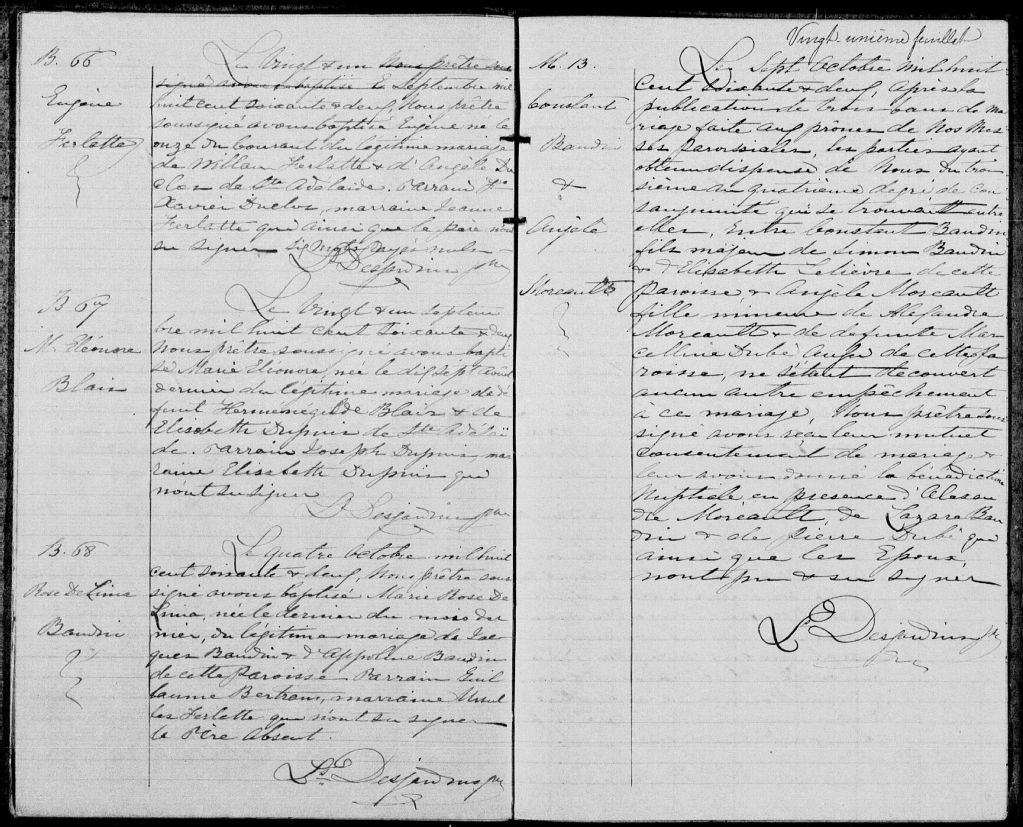 B. 66
Eugène
Ferlatte
Le Vingt & un Nous prêtre sous
signé avons baptisé le Septembre mil
huit cent soixante & deux, Nous prêtre
soussigné avons baptisé Eugène né le
onze du courant du légitime mariage
de William Ferlatte & d'Angèle Du
clos de Ste Adelaide. Parrain Frs
Xavier Duclos, marraine Jeanne
Ferlatte qui ainsi que le père n'ont
su signer six mots rayés nuls
Ls Desjardins ptre
B 67
M. Eléonore
Blain
Le Vingt & un Septem
bre mil huit cent soixante & deux
Nous prêtre soussigné avons bapti
sé Marie Eléonore, née le dix sept Août
dernier du légitime mariage de dé
funt Hermenegilde Blain & de
Elisabeth Dupuis de Ste Adélaï
de. Parrain Joseph Dupuis, mar
raine Elisabeth Dupuis qui
n'ont su signer
Ls Desjardins ptre
B. 68
Rose De Lima
Baudin
Le quatre octobre mil huit
cent soixante & deux, Nous prêtre sous
signé avons baptisé Marie Rose De
Lima, née le dernier du mois der
nier, du légitime mariage de Jac
ques Baudin & d'Appoline Baudin
de cette Paroisse Parrain Guil
laume Bertrans, marraine Ursul
les Ferlatte qui n'ont su signer
le Père Absent.
Ls Desjardins ptre
Vingt-unième feuillet
M. 13.
Constant
Baudin
&
Anjèle
Morcault
Le Sept Octobre mil huit
Cent Soixante & deux, Après la
publication de trois bans de ma
riage faite aux prônes de Nos Mes
ses Paroissiales, les parties ayant
obtenu dispense de Nous du troi
sième au quatrième degré de Con
sanguinité qui se trouvait entre
elles, Entre Constant Baudin
fils majeur de Simon Baudin
& d'Elisabeth Lelièvre de cette
Paroisse & Angèle Morcault
fille mineure de Alexandre
Morcault & de defunte Mar
celline Dubé Aussi de cette pa
roisse, ne s'étant découvert
aucun autre empêchement
à ce mariage, Nous prêtre sous
signé avons reçu leur mutuel
Consentement de mariage &
leur avons donné la bénédiction
Nuptiale en présence d'Alexan
dre Morcault, de Lazare Bau
din & de pierre Dubé qui
ainsi que les Epoux,
n'ont pu & su signer
Ls Desjardins ptre